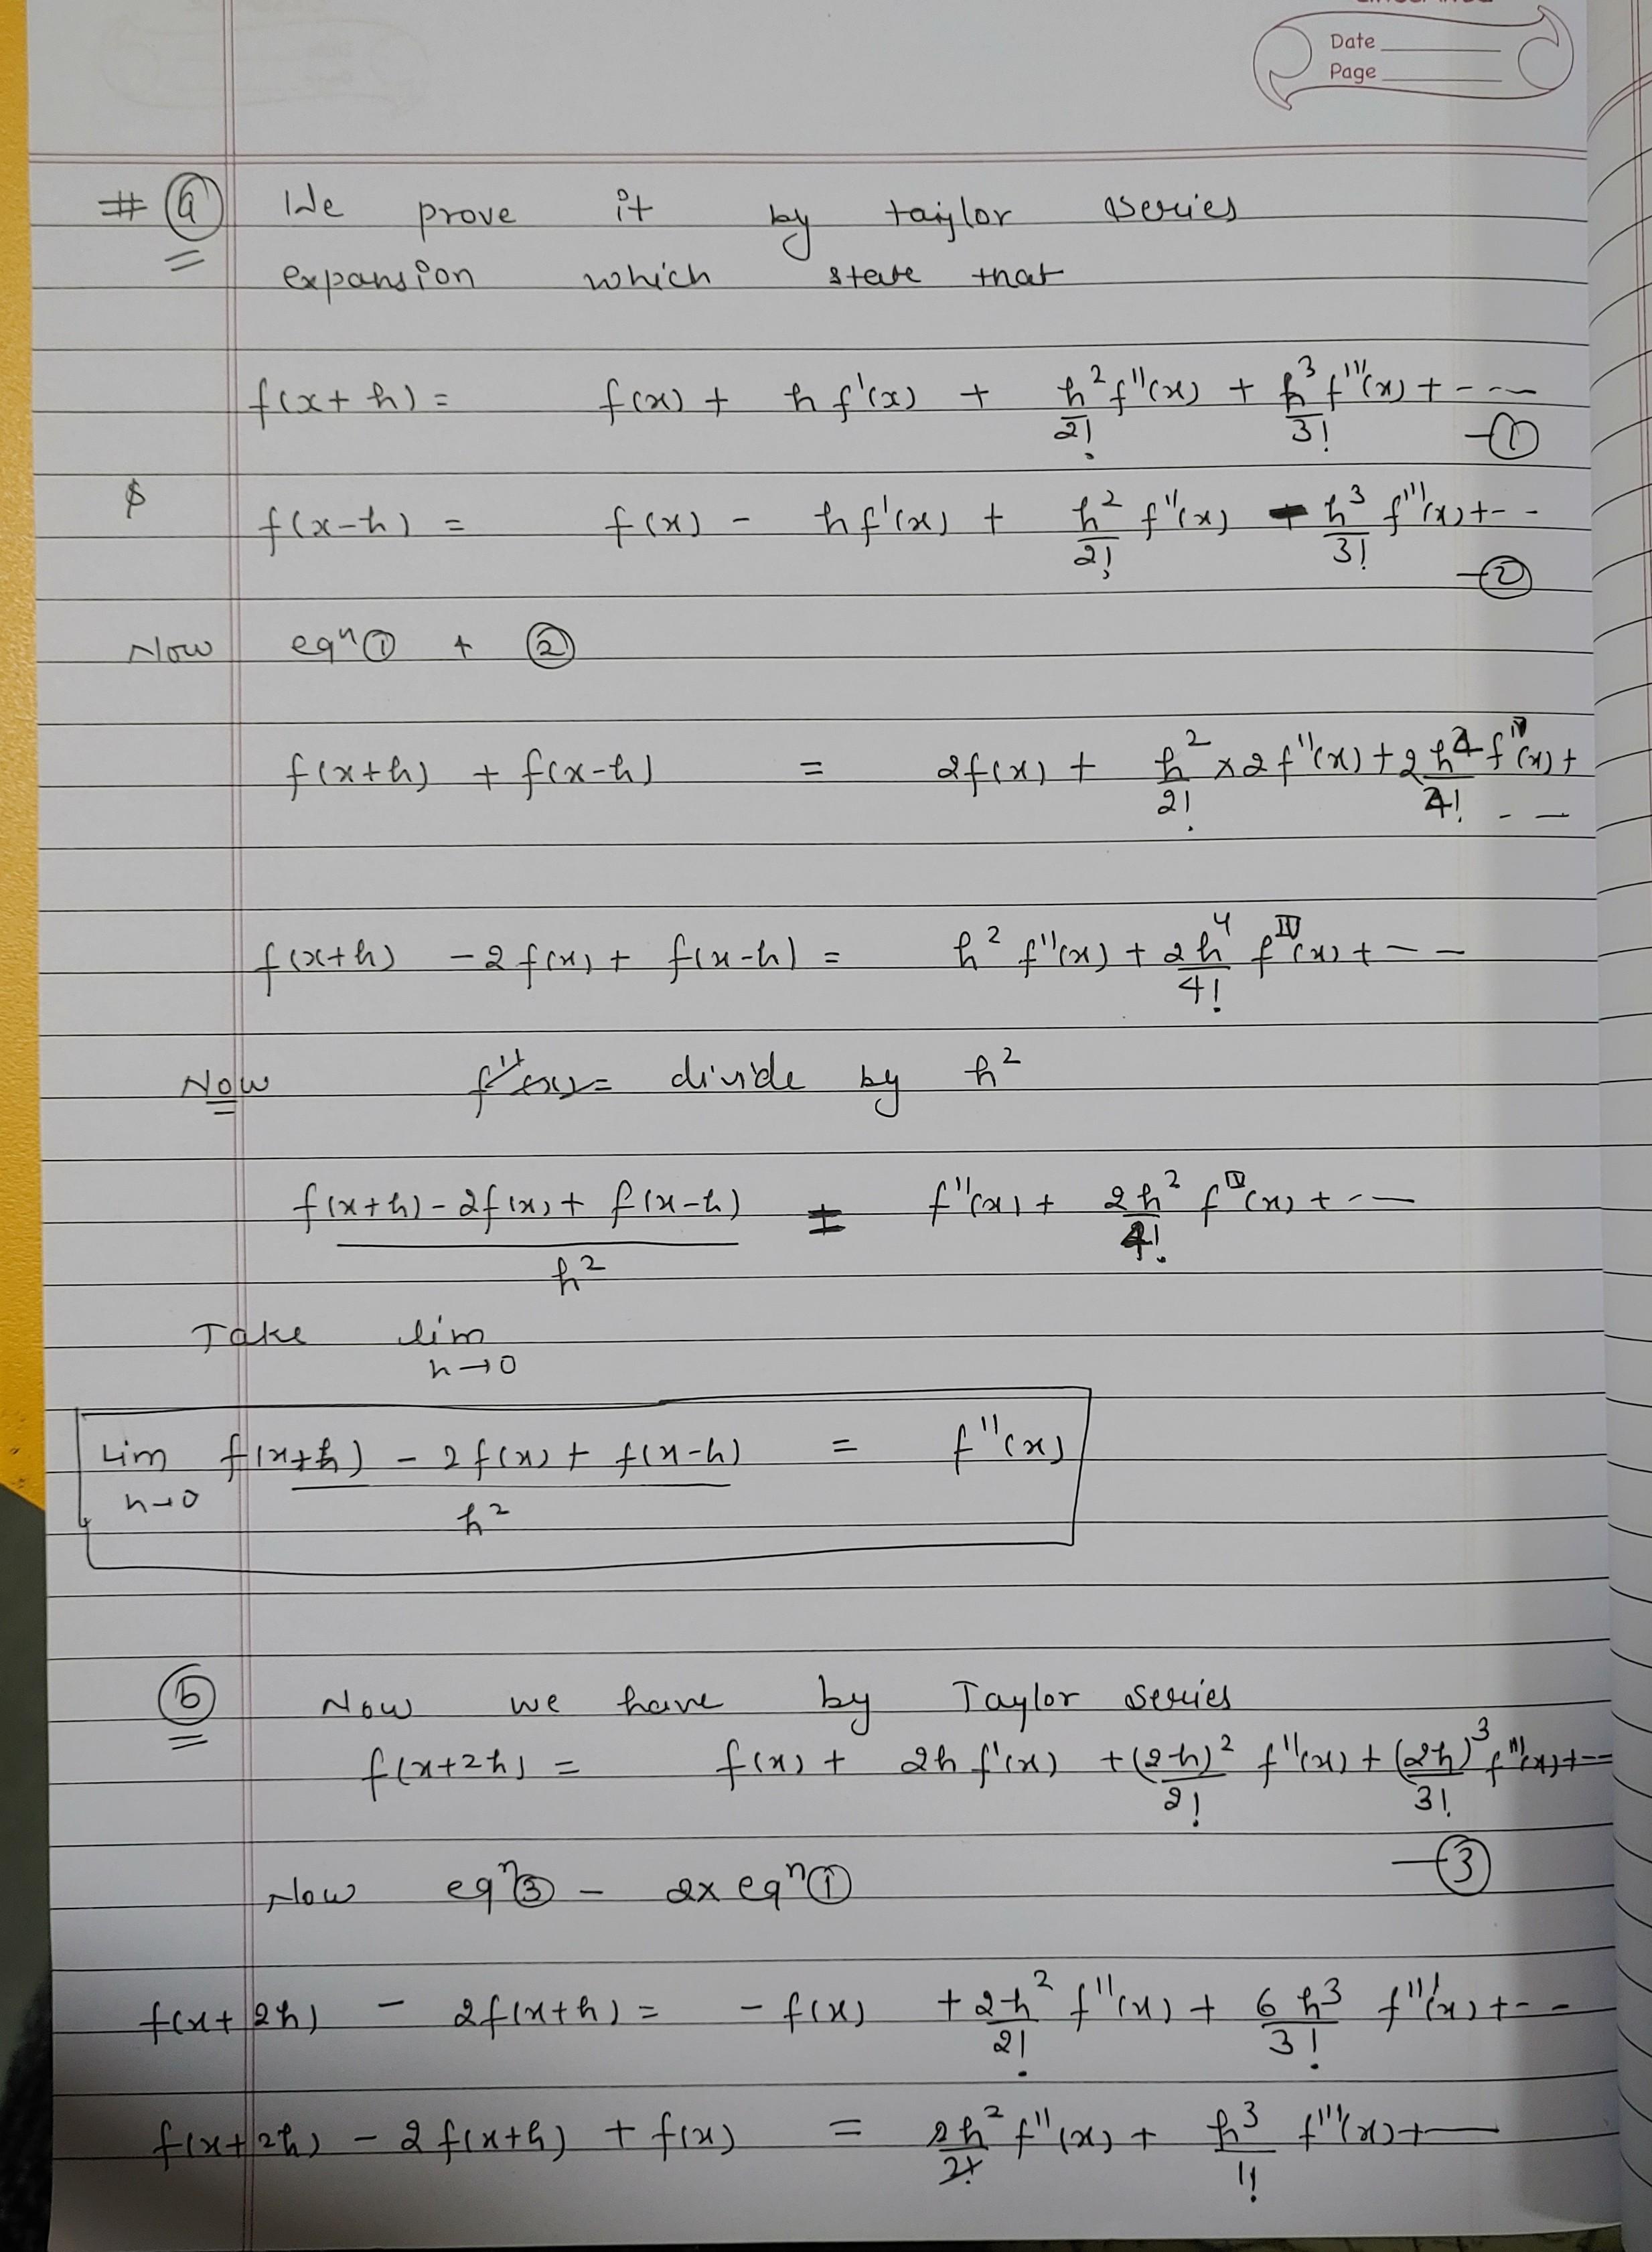 Date
Page
# (a) We prove it by taylor series
expansion which state that
f(x+h) = f(x) + h f'(x) + h²/2! f''(x) + h³/3! f'''(x) + - - - —①
& f(x-h) = f(x) - hf'(x) + h²/2! f''(x) - h³/3! f'''(x) + - - —②
Now eqⁿ① + ②
f(x+h) + f(x-h) = 2f(x) + h²/2! × 2f''(x) + 2h⁴/4! f^IV(x) + - -
f(x+h) - 2f(x) + f(x-h) = h² f''(x) + 2h⁴/4! f^IV(x) + - -
Now divide by h²
(f(x+h) - 2f(x) + f(x-h))/h² = f''(x) + 2h²/4! f^IV(x) + - -
Take lim h→0
Lim h→0 (f(x+h) - 2f(x) + f(x-h))/h² = f''(x)
(b) Now we have by Taylor series
f(x+2h) = f(x) + 2h f'(x) + (2h)²/2! f''(x) + (2h)³/3! f'''(x) + - - —③
Now eqⁿ③ - 2x eqⁿ①
f(x+2h) - 2f(x+h) = -f(x) + 2h²/2! f''(x) + 6h³/3! f'''(x) + - -
f(x+2h) - 2f(x+h) + f(x) = 2h²/2! f''(x) + h³/1! f'''(x) + —